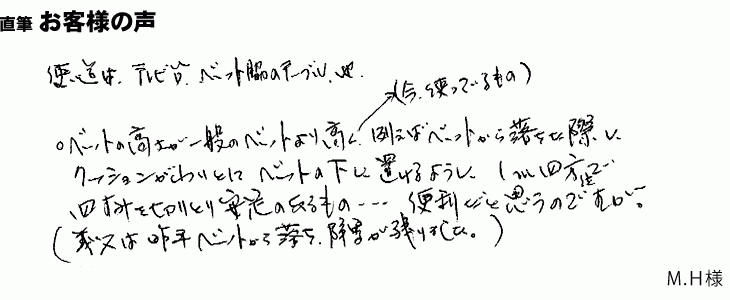 直筆 お客様の声
使い道は、テレビ台、ベット脇のテーブル、他.
(今、使っているもの)
○ベットの高さが一般のベットより高く、例えばベットから落ちた際に
クッションがわりとして ベットの下に置けるように、1m四方位で
四すみを切りとり安定のあるもの… 便利だと思うのですが。
(義父は昨年ベットから落ち、障害が残りました。)
M.H様